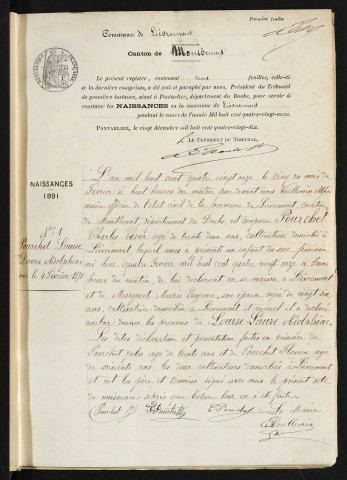 Première feuille
Commune de Liévremont
Canton de Montbenoit
Le présent registre, contenant feuilles, celle-ci
et la dernière comprises, a été coté et paraphé par nous, Président du Tribunal
de première instance, séant à Pontarlier, département du Doubs, pour servir à
constater les NAISSANCES en la commune de Liévremont
pendant le cours de l'année Mil huit cent quatre-vingt-onze.
PONTARLIER, le vingt décembre mil huit cent quatre-vingt-dix.
LE PRÉSIDENT DU TRIBUNAL,
NAISSANCES
1891
N° 1
Pourchet Louise
Laure Adolphine
née le 4 Février 1891
L'an mil huit cent quatre vingt onze le cinq du mois de
Février à huit heures du matin par devant nous Vuillemin
maire officier de l'état civil de la commune de Liévremont canton
de Montbenoit, département du Doubs, est comparu Pourchet
Charles César âgé de trente deux ans, cultivateur domicilié à
Liévremont, lequel nous a présenté un enfant du sexe féminin
né hier quatre Février mil huit cent quatre vingt onze à
heures du matin, de lui déclarant en sa maison à Liévremont
et de Marguet Marie Eugénie, son épouse âgée de vingt six
ans, cultivatrice domiciliée à Liévremont et auquel il a déclaré
vouloir donner les prénoms de Louise Laure Adolphine
Les dites déclaration et présentation faites en présence de
Pourchet Jules âgé de trente ans et de Pourchet Florien âgé
de soixante ans les deux cultivateurs domiciliés à Liévremont
et ont les père et témoins signé avec nous le présent acte
de naissance après que lecture leur en a été faite.
Pourchet Pourchet Le Maire
Vuillemin